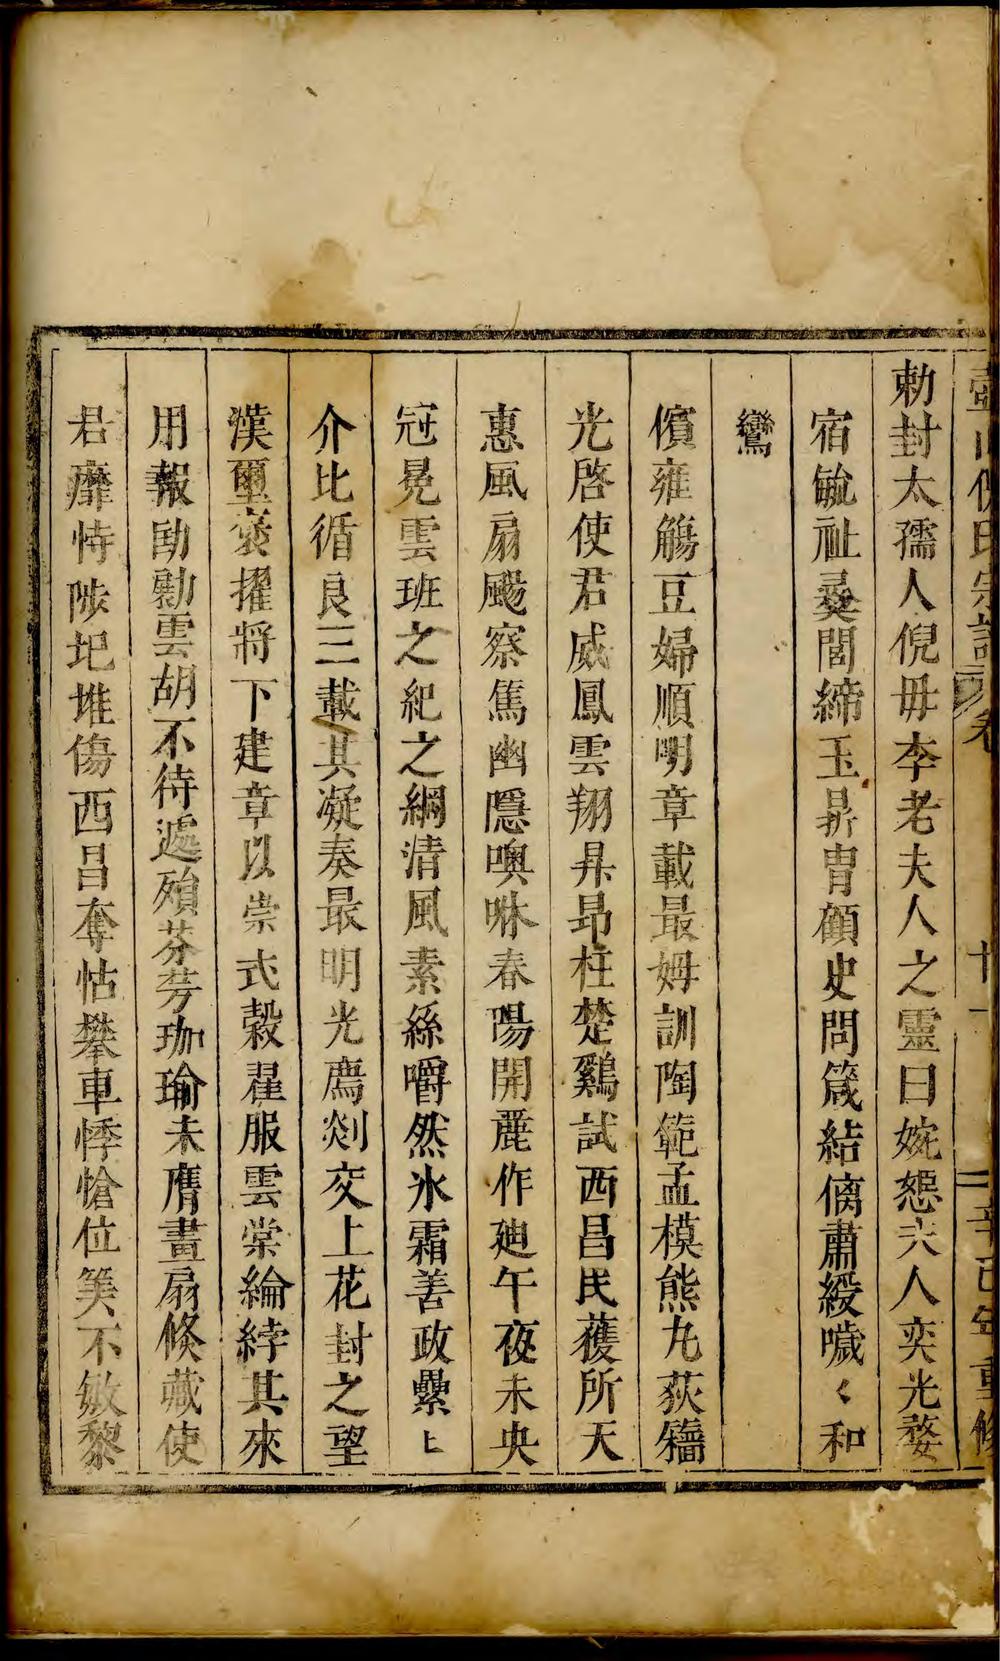 壺山倪氏宗譜 卷 十一 辛巳年重修
勅封太孺人倪毋李老夫人之靈曰婉惄夫人奕光婺
宿毓祉彛閨締玉鼎胄顧史問箴結僑肅綬噦〻和
鸞
儐雍觴豆婦順明章載最姆訓陶範孟模熊九荻牗
光啓使君威鳳雲翔昇昂柱楚鷄試西昌民蒦所天
惠風扇颺察雋幽隱噢咻春陽開蔍作廸午夜未央
冠冕雲班之紀之綱清風素絲嚼然氷霜善政纍〻
介比循良三載其凝奏最明光薦剡交上花封之望
漢璽褎擢將下建章以崇式穀翟服雲棠綸綍其來
用報劬勩雲胡不待遽殞芬芳珈瑜未膺畫扇倏藏使
君癠恃陟圯堆傷西昌奪怙攀車悸愴位筭不敏黎